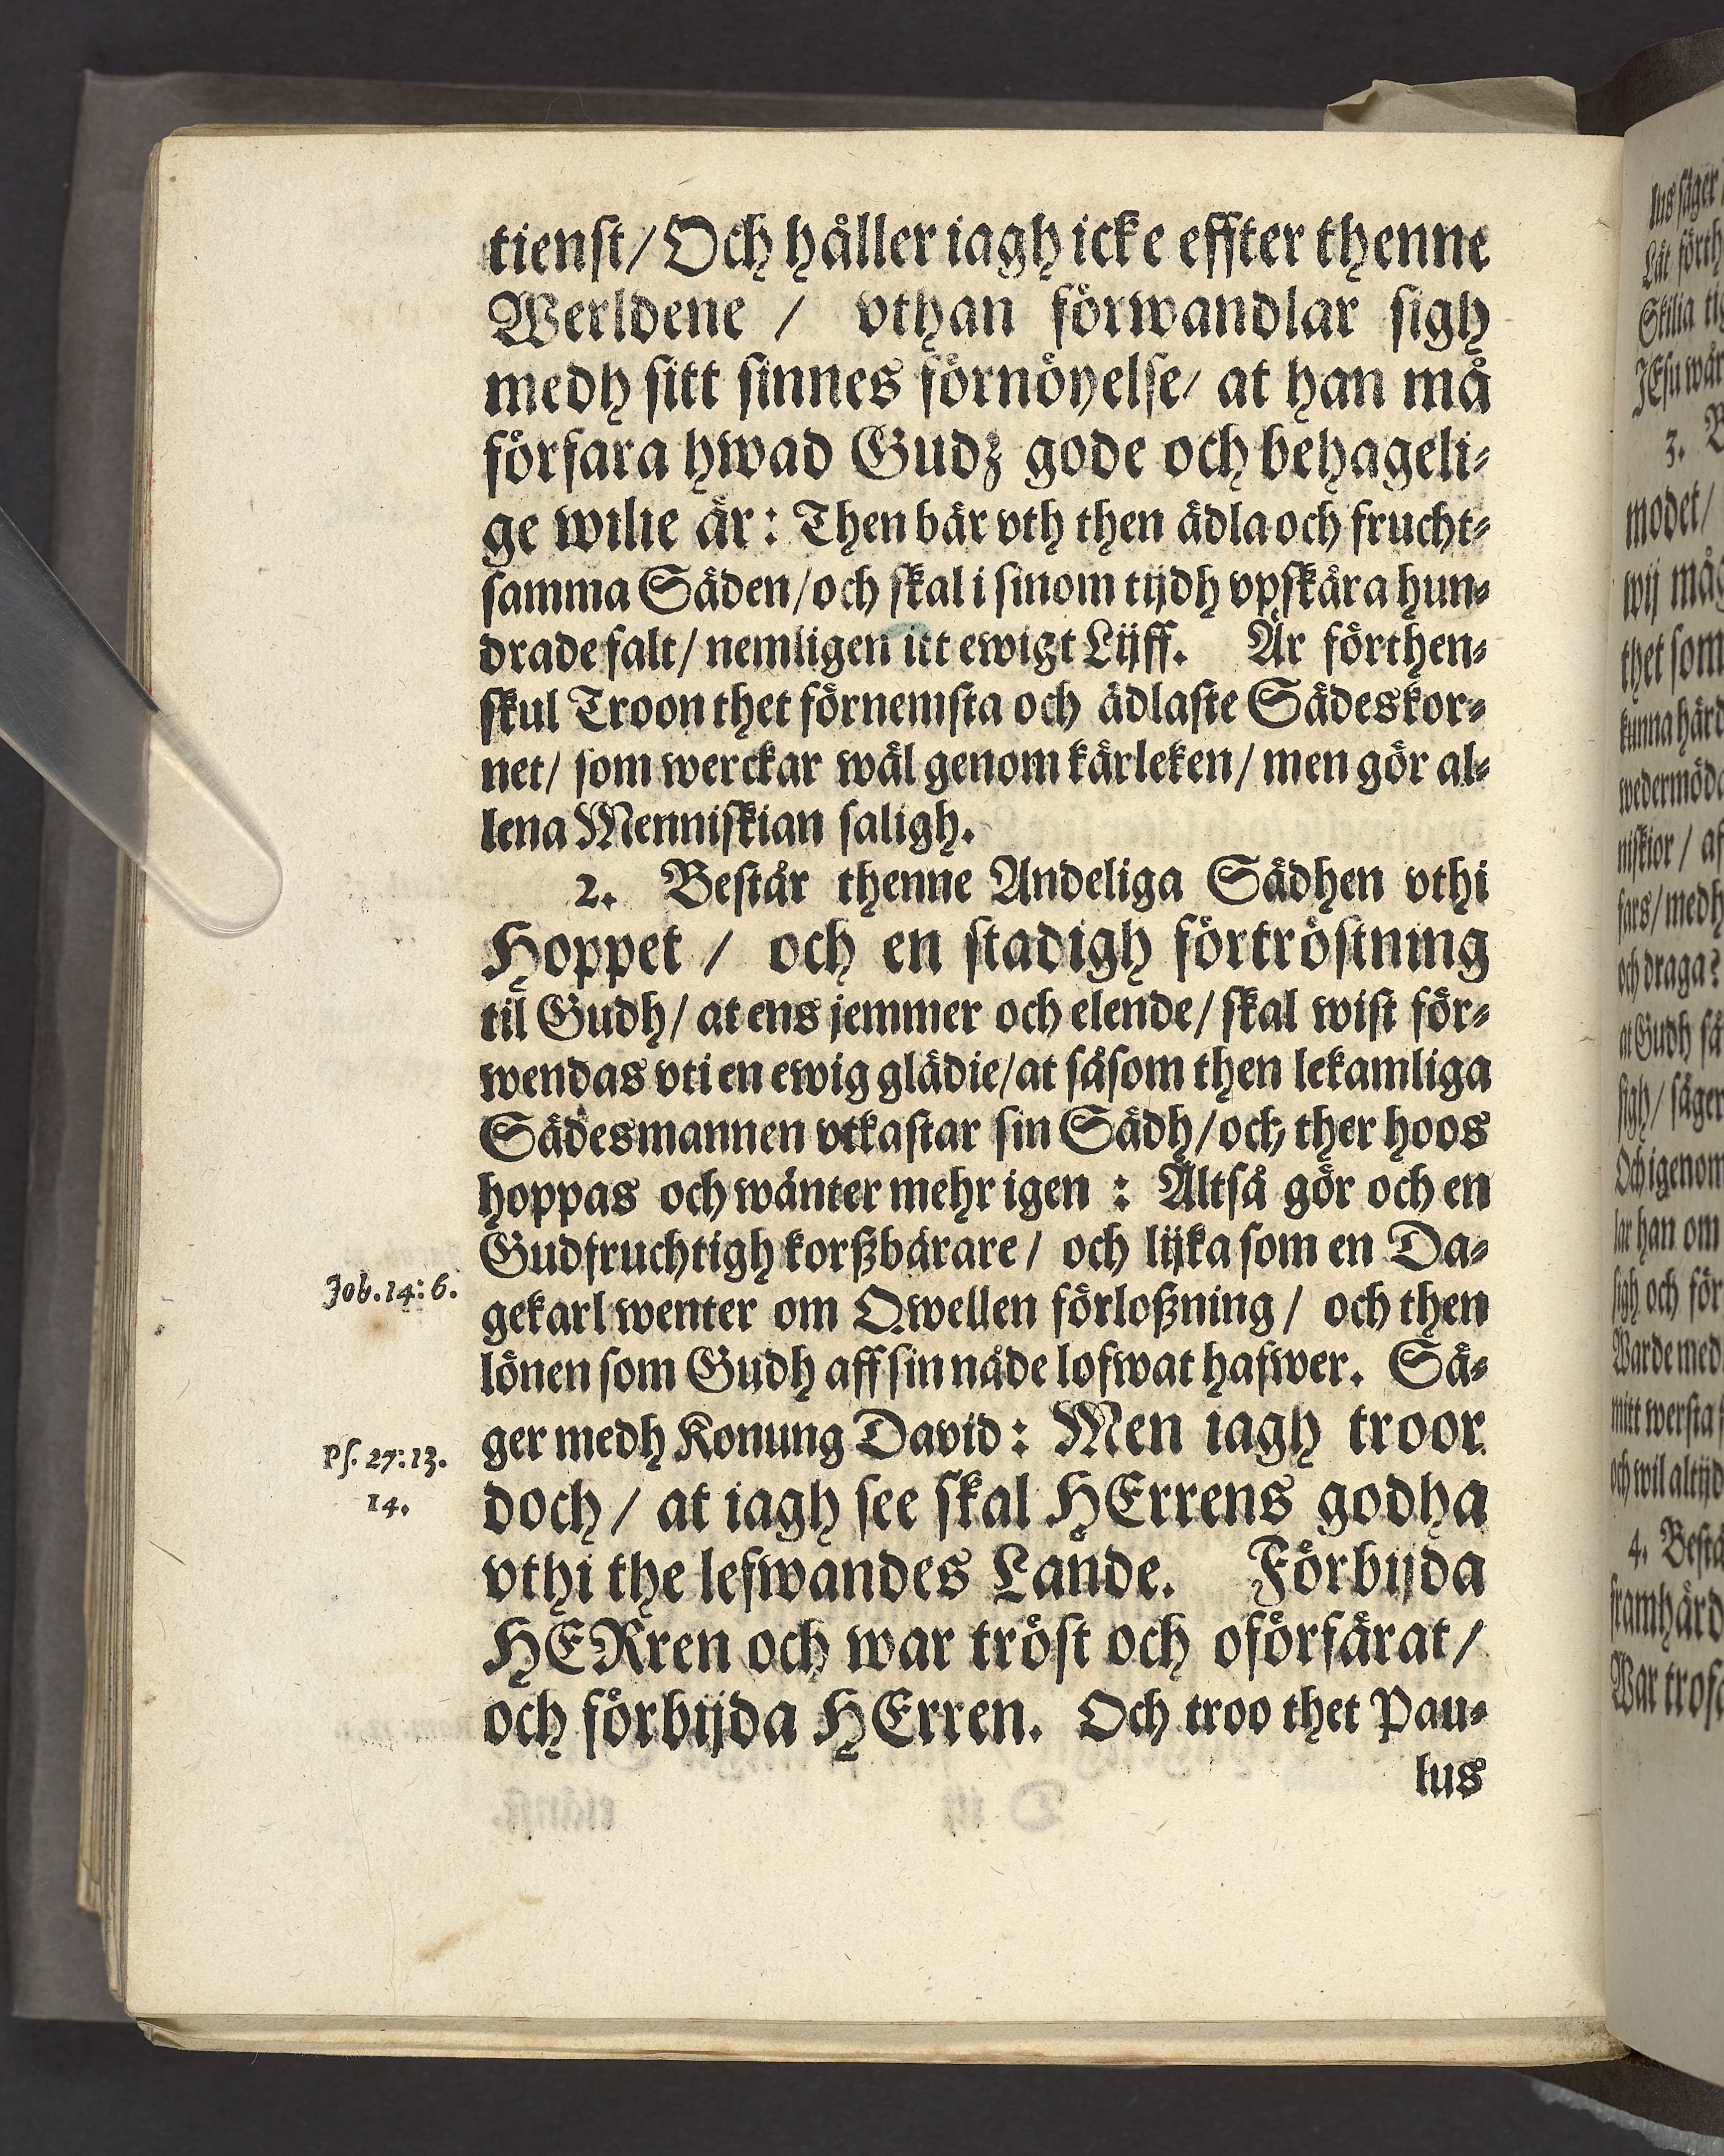 tienst/ Och håller iagh icke effter thenne
Werldene / vthan förwandlar sigh
medh sitt sinnes förnöyelse/ at han må
förfara hwad Gudz gode och behageli-
ge wilie är: Then bär vth then ädla och frucht-
samma Säden/ och skal i sinom tijdh vpskära hun-
drade falt/ nemligen itt ewigt Lijff. Är förthen-
skul Troon thet förnemsta och ädlaste Sädeskor-
net/ som werckar wäl genom kärleken/ men gör al-
lena Menniskian saligh.
2. Består thenne Andeliga Sädhen vthi
Hoppet / och en stadigh förtröstning
til Gudh/ at ens jemmer och elende/ skal wist för-
wendas vti en ewig glädie/ at såsom then lekamliga
Sädesmannen vtkastar sin Sädh/ och ther hoos
hoppas och wänter mehr igen : Altså gör och en
Gudfruchtigh korßbärare / och lijka som en Da-
Job. 14: 6.
gekarl wenter om Qwellen förloßning / och then
lönen som Gudh aff sin nåde lofwat hafwer. Sä-
ger medh Konung David : Men iagh troor
Ps. 27: 13.
14.
doch / at iagh see skal HErrens godha
vthi the lefwandes Lande. Förbijda
HERren och war tröst och oförfärat /
och förbijda HErren. Och troo thet Pau-
lus
lus säger
Skilia
JEsu wår
3.
modet/
wij
thet som
kunna härd
niskior / af
fars/ medh
och draga?
at Gudh så
sigh/ säger
Och igenom
lar han om
sigh och för
Warde med
mitt wersta
och wil altijd
4. Bestå
framhärd
War trofa